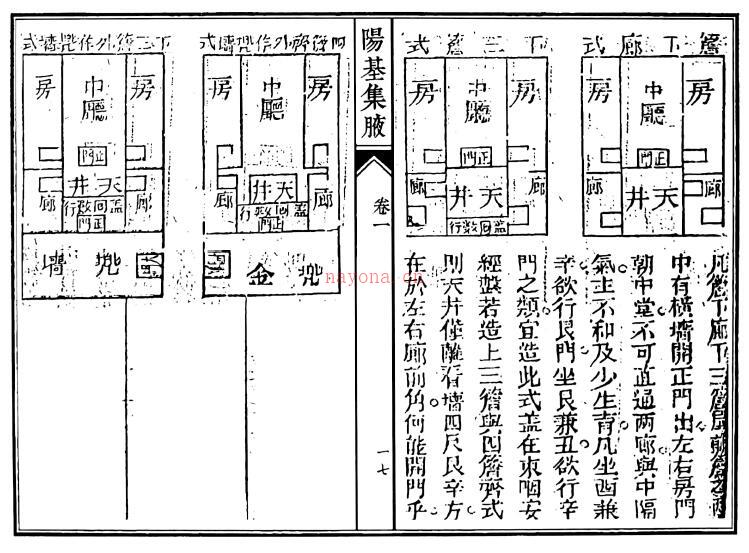 簷下廊式
房
中廳
房
正門
廊
天井
廊
下三簷式
房
中廳
房
正門
廊
天井
廊
盖回教行
凡簷下廊下三簷
中有橫墻開正門出左右房門
朝中堂不可直通两廊與中隔
氣主不和及少生育凡坐酉兼
辛欲行艮門坐艮兼丑欲行辛
門之類宜造此式盖在東咽安
經盤若造上三簷與四簷齊式
則天井僅離脊墻四尺艮辛方
在於左右廊前角何能開門乎
陽基集腋
卷一
一七
四簷齊外作兜墻式
房
中廳
房
天井
廊
廊
盖回教行
正門
兜金
下三簷外作兜墻式
房
中廳
房
正門
廊
天井
廊
盖回教行
正門
兜墻
nayona.cn